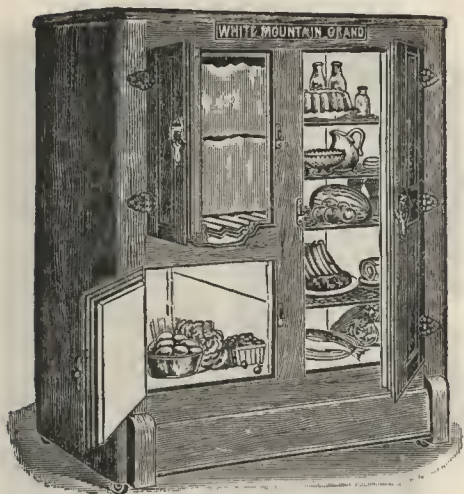 WHITE MOUNTAIN GRAND